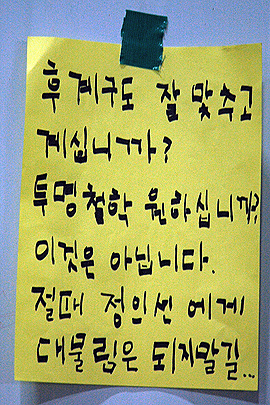 후계구도 잘 맞추고
계십니까?
투명철학 원하십니까?
이것은 아닙니다.
절때 정의선 에게
대물림은 되지말길...